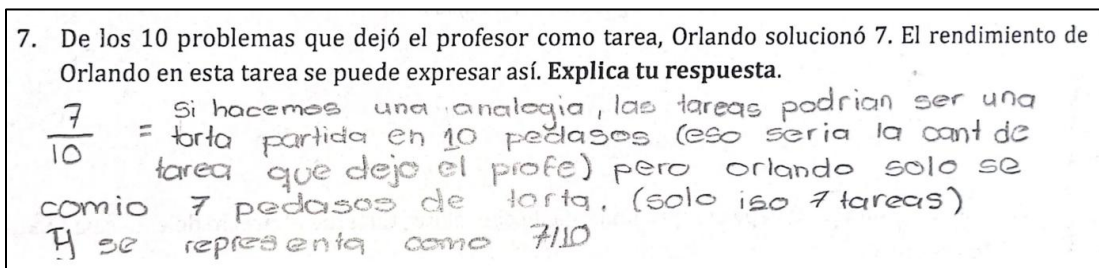 7. De los 10 problemas que dejó el profesor como tarea, Orlando solucionó 7. El rendimiento de
Orlando en esta tarea se puede expresar así. Explica tu respuesta.
7/10 = Si hacemos una analogia, las tareas podrian ser una
torta partida en 10 pedasos (eso seria la cant de
tarea que dejo el profe) pero orlando solo se
comio 7 pedasos de torta. (solo iso 7 tareas)
Y se representa como 7/10